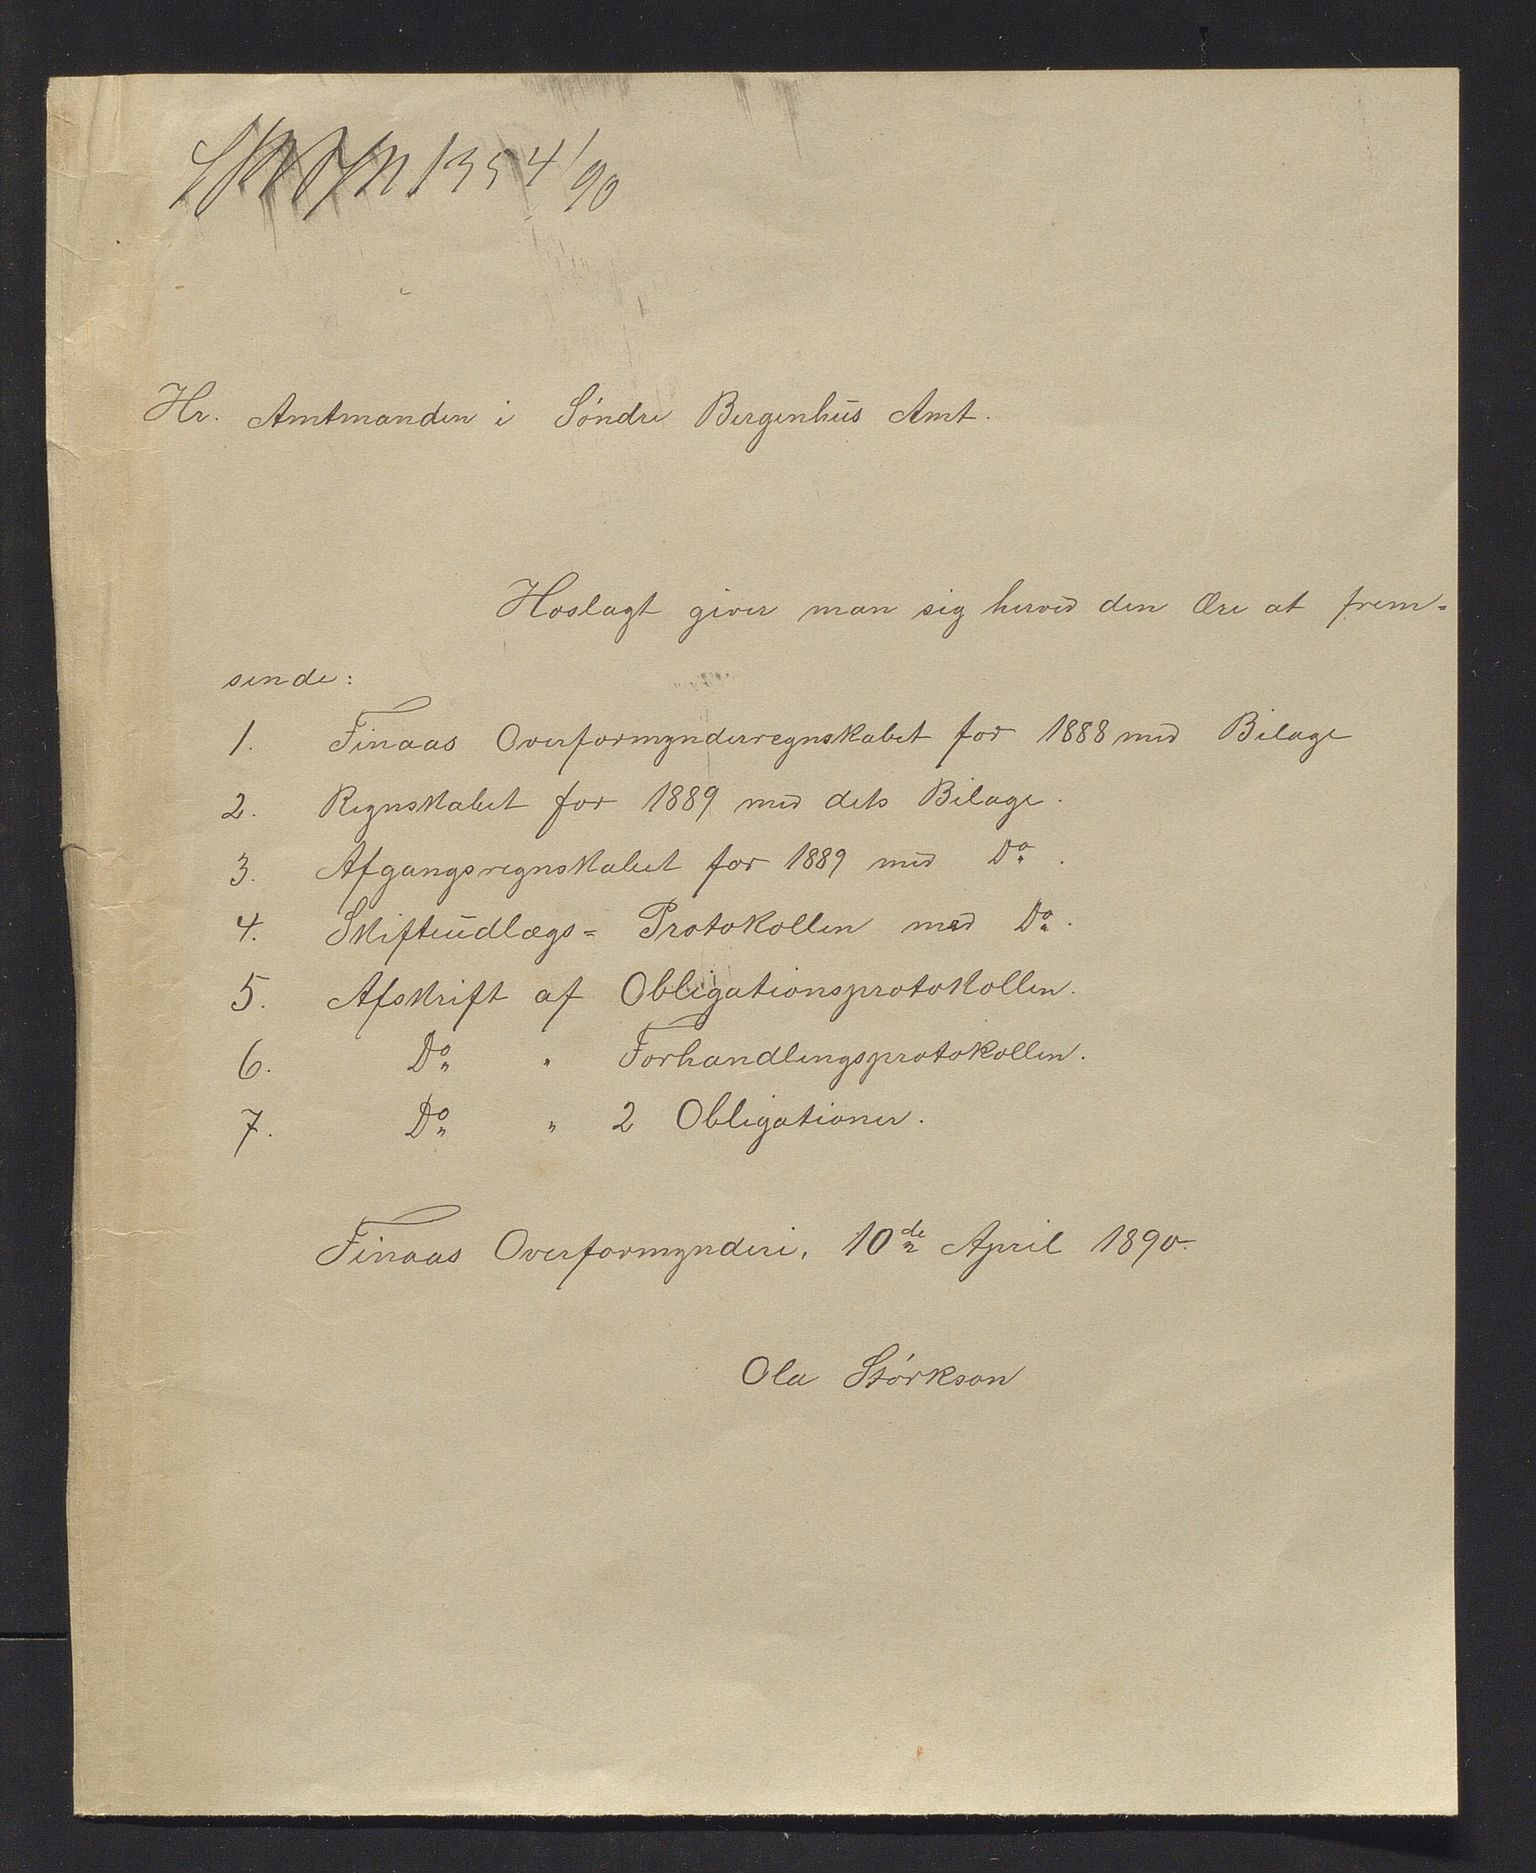 1354/90
Hr. Amtmanden i Söndre Bergenhus Amt.
Hoslagt giver man sig herved den Ære at frem-
sende:
1. Finaas Overformynderregnskabet for 1888 med Bilage
2. Regnskabet for 1889 med dets Bilage.
3. Afgangsregnskabet for 1889 med Do.
4. Skifteudlægs= Protokollen med Do.
5. Afskrift af Obligationsprotokollen.
6. Do " Forhandlingsprotokollen.
7. Do " 2 Obligationer.
Finaas Overformynderi, 10de April 1890.
Ola Störkson